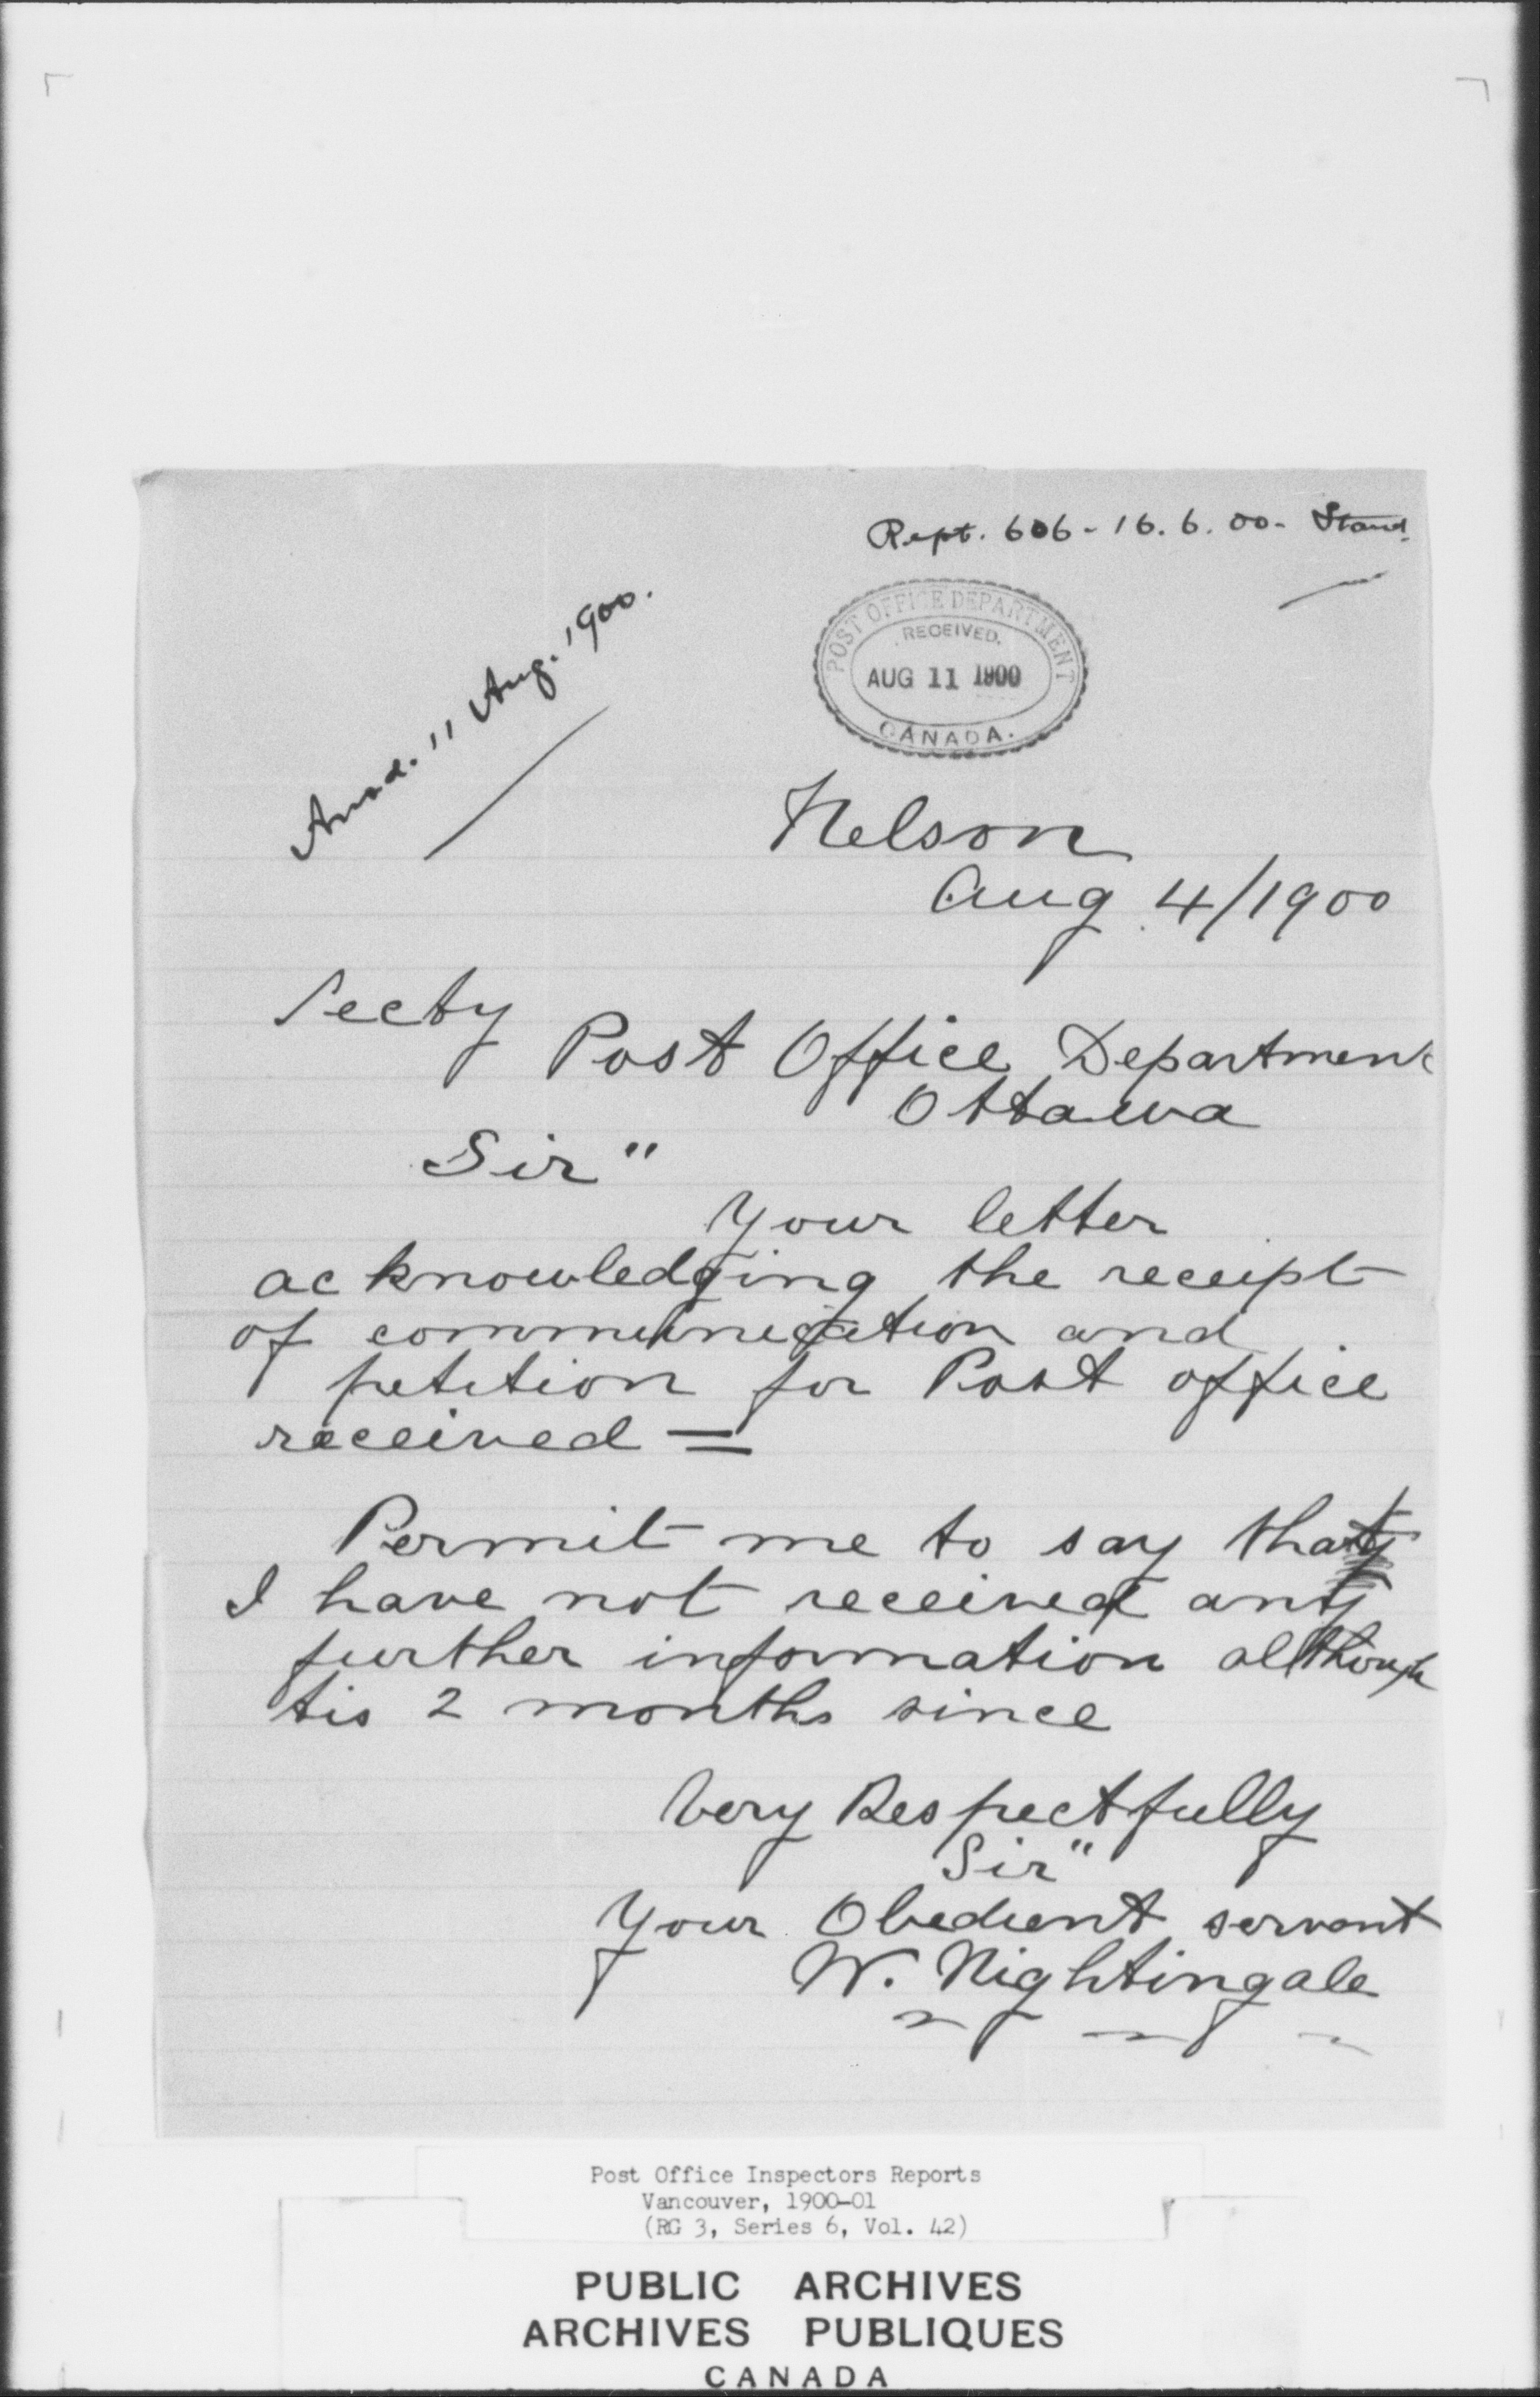 Rept. 606 - 16.6.00 - Stand.
Answd. 11 Aug. 1900.
POST OFFICE DEPARTMENT
RECEIVED.
AUG 11 1900
CANADA.
Nelson
Aug 4/1900
Secty
Post Office Department
Ottawa
Sir"
Your letter
acknowledging the receipt
of communication and
petition for Post office
received =
Permit me to say that
I have not received any
further information although
tis 2 months since
Very Respectfully
Sir"
Your Obedient servant
W. Nightingale
Post Office Inspectors Reports
Vancouver, 1900-01
(RG 3, Series 6, Vol. 42)
PUBLIC ARCHIVES
ARCHIVES PUBLIQUES
CANADA